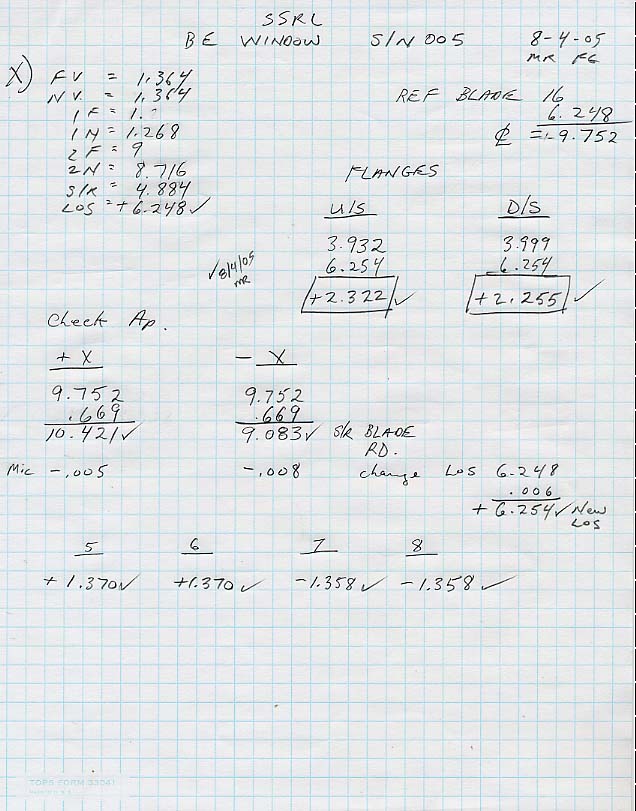 SSRL
BE WINDOW S/N 005 8-4-05
MR FG
X) FV = 1.364
NV. = 1.364
1F = 1.-
1N = 1.268
2F = 9
2N = 8.716
S/R = 4.884
LOS = + 6.248 ✓
REF BLADE 16
6.248
℄ = -9.752
FLANGES
U/S D/S
3.932 3.999
6.254 6.254
+2.322 ✓ +2.255 ✓
✓ 8/4/05
MR
Check Ap.
+ X - X
9.752 9.752
.669 .669
10.421 ✓ 9.083 ✓ S/R BLADE
RD.
Mic -.005 -.008 change LOS 6.248
.006
+ 6.254 ✓ New
LOS
5 6 7 8
+ 1.370 ✓ +1.370 ✓ -1.358 ✓ -1.358 ✓
TOPS FORM 33041